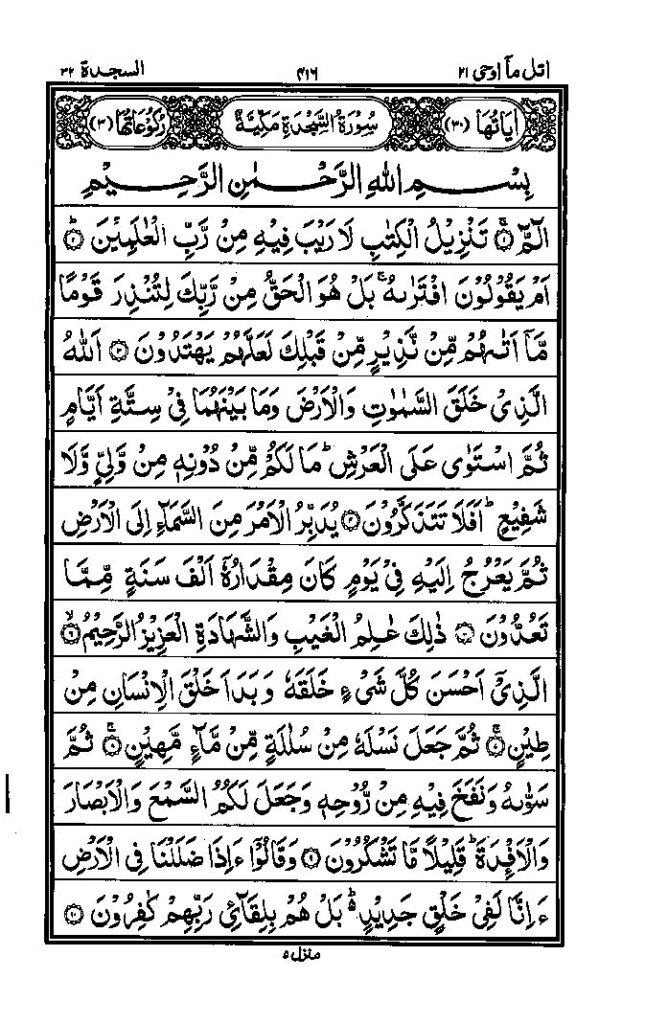 اتل مآ اوحی ۲۱ ۴۱۶ السجدة ۳۲
اٰیَاتُهَا (۳۰) سُوْرَةُ السَّجْدَةِ مَکِّیَّةٌ رُکُوْعَاتُهَا (۳)
بِسْمِ اللهِ الرَّحْمٰنِ الرَّحِیْمِ
الٓمّٓ ۚ﴿۱﴾ تَنْزِیْلُ الْکِتٰبِ لَا رَیْبَ فِیْهِ مِنْ رَّبِّ الْعٰلَمِیْنَ ؕ﴿۲﴾
اَمْ یَقُوْلُوْنَ افْتَرٰىهُ ۚ بَلْ هُوَ الْحَقُّ مِنْ رَّبِّکَ لِتُنْذِرَ قَوْمًا
مَّاۤ اَتٰىهُمْ مِّنْ نَّذِیْرٍ مِّنْ قَبْلِکَ لَعَلَّهُمْ یَهْتَدُوْنَ ﴿۳﴾ اَللهُ
الَّذِیْ خَلَقَ السَّمٰوٰتِ وَالْاَرْضَ وَمَا بَیْنَهُمَا فِیْ سِتَّةِ اَیَّامٍ
ثُمَّ اسْتَوٰی عَلَی الْعَرْشِ ؕ مَا لَکُمْ مِّنْ دُوْنِهٖ مِنْ وَّلِیٍّ وَّلَا
شَفِیْعٍ ؕ اَفَلَا تَتَذَکَّرُوْنَ ﴿۴﴾ یُدَبِّرُ الْاَمْرَ مِنَ السَّمَآءِ اِلَی الْاَرْضِ
ثُمَّ یَعْرُجُ اِلَیْهِ فِیْ یَوْمٍ کَانَ مِقْدَارُهٗۤ اَلْفَ سَنَةٍ مِّمَّا
تَعُدُّوْنَ ﴿۵﴾ ذٰلِکَ عٰلِمُ الْغَیْبِ وَالشَّهَادَةِ الْعَزِیْزُ الرَّحِیْمُ ۙ﴿۶﴾
الَّذِیْۤ اَحْسَنَ کُلَّ شَیْءٍ خَلَقَهٗ وَبَدَاَ خَلْقَ الْاِنْسَانِ مِنْ
طِیْنٍ ۚ﴿۷﴾ ثُمَّ جَعَلَ نَسْلَهٗ مِنْ سُلٰلَةٍ مِّنْ مَّآءٍ مَّهِیْنٍ ۚ﴿۸﴾ ثُمَّ
سَوّٰىهُ وَنَفَخَ فِیْهِ مِنْ رُّوْحِهٖ وَجَعَلَ لَکُمُ السَّمْعَ وَالْاَبْصَارَ
وَالْاَفْـِٕدَةَ ؕ قَلِیْلًا مَّا تَشْکُرُوْنَ ﴿۹﴾ وَقَالُوْۤا ءَاِذَا ضَلَلْنَا فِی الْاَرْضِ
ءَاِنَّا لَفِیْ خَلْقٍ جَدِیْدٍ ؕ۬ بَلْ هُمْ بِلِقَآئِ رَبِّهِمْ کٰفِرُوْنَ ﴿۱۰﴾
منزل ۵